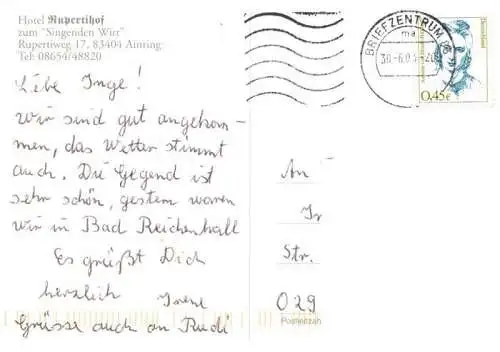 Hotel Rupertihof
zum "Singenden Wirt"
Rupertiweg 17, 83404 Ainring
Tel: 08654/48820
Liebe Inge!
wir sind gut angekom-
men, das Wetter stimmt
auch. Die Gegend ist
sehr schön, gestern waren
wir in Bad Reichenhall
Es grüßt Dich
herzlich Irene
Grüsse auch an Rudi
BRIEFZENTRUM
ma
30.-6.0
Deutschland
0,45€
An
Str.
029
Postleitzahl